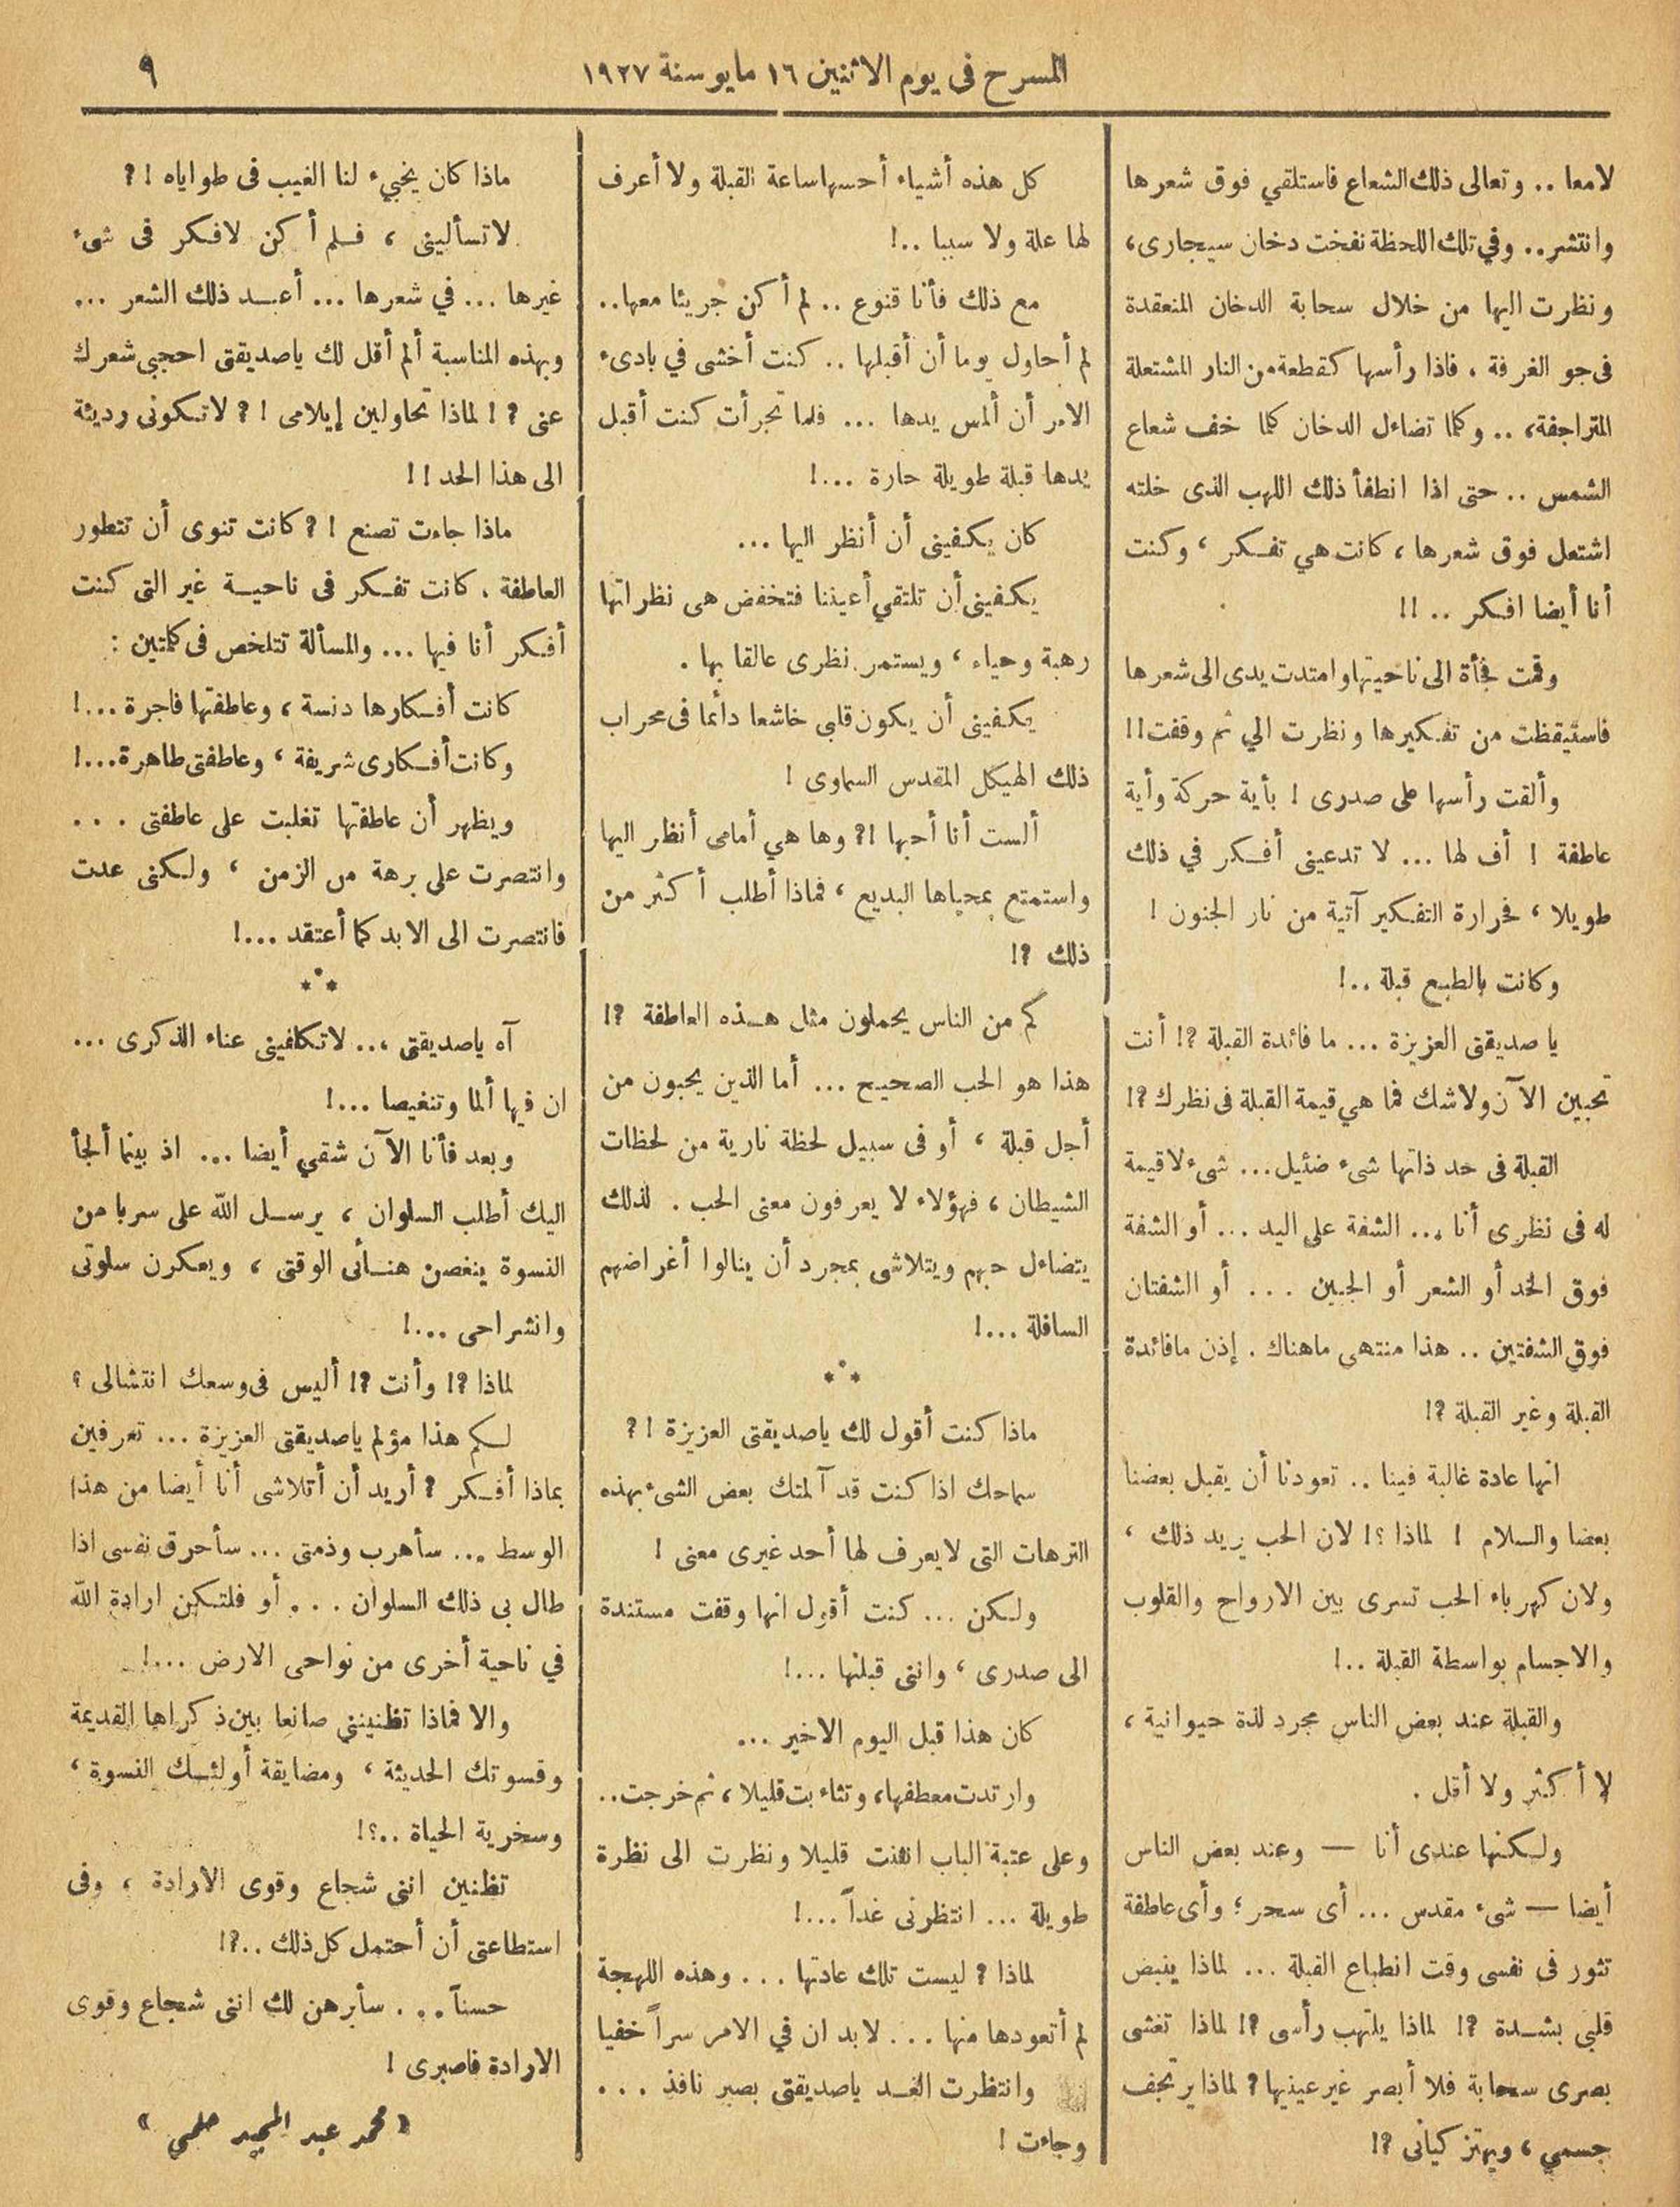 المسرح فى يوم الاثنين ١٦ مايو سنة ١٩٢٧
٩
لامعا .. وتعالى ذلك الشعاع فاستلقي فوق شعرها
وانتشر .. وفي تلك اللحظة نفخت دخان سيجارى،
ونظرت اليها من خلال سحابة الدخان المنعقدة
فى جو الغرفة ، فاذا رأسها كقطعة من النار المشتعلة
المتراجفة، .. وكلما تضاءل الدخان كلما خف شعاع
الشمس .. حتى اذا انطفأ ذلك اللهب الذى خلته
اشتعل فوق شعرها ، كانت هي تفكر ، وكنت
أنا أيضا افكر .. !!
وقمت فجأة الى ناحيتها وامتدت يدى الى شعرها
فاستيقظت من تفكيرها ونظرت الي ثم وقفت !!
وألقت رأسها على صدرى ! بأية حركة وأية
عاطفة ! أف لها ... لا تدعينى أفكر في ذلك
طويلا ، فحرارة التفكير آتية من نار الجنون !
وكانت بالطبع قبلة ..!
يا صديقتى العزيزة ... ما فائدة القبلة ?! أنت
تحبين الآن ولاشك فما هي قيمة القبلة فى نظرك ?!
القبلة فى حد ذاتها شىء ضئيل ... شىء لا قيمة
له فى نظرى أنا ... الشفة على اليد ... أو الشفة
فوق الخد أو الشعر أو الجبين ... أو الشفتان
فوق الشفتين .. هذا منتهى ماهناك . إذن مافائدة
القبلة وغير القبلة ?!
انها عادة غالبة فينا .. تعودنا أن يقبل بعضنا
بعضا والسلام ! لماذا ؟! لان الحب يريد ذلك ،
ولان كهرباء الحب تسرى بين الارواح والقلوب
والاجسام بواسطة القبلة ..!
والقبلة عند بعض الناس مجرد لذة حيوانية ،
لا أكثر ولا أقل .
ولكنها عندى أنا — وعند بعض الناس
أيضا — شىء مقدس ... أى سحر ؛ وأى عاطفة
تثور فى نفسى وقت انطباع القبلة ... لماذا ينبض
قلبى بشدة ?! لماذا يلتهب رأسى ?! لماذا تغشى
بصرى سحابة فلا أبصر غير عينيها ? لماذا يرتجف
جسمي ، ويهتز كيانى ?!
كل هذه أشياء أحسها ساعة القبلة ولا أعرف
لها علة ولا سببا ..!
مع ذلك فأنا قنوع .. لم أكن جريئا معها ..
لم أحاول يوما أن أقبلها .. كنت أخشى في بادىء
الامر أن ألمس يدها ... فلما تجرأت كنت أقبل
يدها قبلة طويلة حارة ...!
كان يكفينى أن أنظر اليها ...
يكفينى أن تلتقي أعيننا فتخفض هى نظراتها
رهبة وحياء ، ويستمر نظرى عالقا بها .
يكفينى أن يكون قلبى خاشعا دائما فى محراب
ذلك الهيكل المقدس السماوى !
ألست أنا أحبها ?! وها هي أمامى أنظر اليها
واستمتع بمحياها البديع ، فماذا أطلب أكثر من
ذلك ?!
كم من الناس يحملون مثل هذه العاطفة ?!
هذا هو الحب الصحيح ... أما الذين يحبون من
أجل قبلة ، أو فى سبيل لحظة نارية من لحظات
الشيطان ، فهؤلاء لا يعرفون معنى الحب . لذلك
يتضاءل حبهم ويتلاشى بمجرد أن ينالوا أغراضهم
السافلة ...!
***
ماذا كنت أقول لك ياصديقتى العزيزة ! ?
سماحك اذا كنت قد آلمتك بعض الشىء بهذه
الترهات التى لا يعرف لها أحد غيرى معنى !
ولكن ... كنت أقول انها وقفت مستندة
الى صدرى ، واننى قبلتها ...!
كان هذا قبل اليوم الاخير ...
وارتدت معطفها، وتثاءبت قليلا ، ثم خرجت ..
وعلى عتبة الباب انثنت قليلا ونظرت الى نظرة
طويلة ... انتظرنى غداً ...!
لماذا ? ليست تلك عادتها ... وهذه اللهجة
لم أتعودها منها ... لابد ان في الامر سراً خفيا
وانتظرت الغد ياصديقتى بصبر نافذ ...
وجاءت !
ماذا كان يخبيء لنا الغيب فى طواياه ! ?
لاتسألينى ، فلم أكن لافكر فى شىء
غيرها ... في شعرها ... أعبد ذلك الشعر ...
وبهذه المناسبة ألم أقل لك ياصديقتى احجبى شعرك
عنى ? ! لماذا تحاولين إيلامى ! ? لاتكونى رديئة
الى هذا الحد ! !
ماذا جاءت تصنع ! ? كانت تنوى أن تتطور
العاطفة . كانت تفكر فى ناحية غير التى كنت
أفكر أنا فيها ... والمسألة تتلخص فى كلمتين :
كانت أفكارها دنسة ، وعاطفتها فاجرة ...!
وكانت أفكارى شريفة ، وعاطفتى طاهرة ...!
ويظهر أن عاطفتها تغلبت على عاطفتى ...
وانتصرت على برهة من الزمن ، ولكنى عدت
فانتصرت الى الابد كما أعتقد ...!
***
آه ياصديقتى ،.. لاتكلفينى عناء الذكرى ...
ان فيها ألما وتنغيصا ...!
وبعد فأنا الآن شقي أيضا ... اذ بينما ألجأ
اليك أطلب السلوان ، يرسل الله على سربا من
النسوة ينغصن هنائى الوقتى ، ويعكرن سلوتى
وانشراحى ...!
لماذا ?! وأنت ?! أليس فى وسعك انتشالى ؟
لكم هذا مؤلم ياصديقتى العزيزة ... تعرفين
بماذا أفكر ? أريد أن أتلاشى أنا أيضا من هذا
الوسط ... سأهرب وذمتى ... سأحرق نفسى اذا
طال بى ذلك السلوان ... أو فلتكن ارادة الله
في ناحية أخرى من نواحى الارض ...!
والا فماذا تظنيننى صانعا بين ذكراها القديمة
وقسوتك الحديثة ، ومضايقة أولئك النسوة ،
وسخرية الحياة ..؟!
تظنين اننى شجاع وقوى الارادة ، وفى
استطاعتى أن أحتمل كل ذلك ..?!
حسناً ... سأبرهن لك اننى شجاع وقوى
الارادة فاصبرى !
« محمد عبد المجيد حلمي »